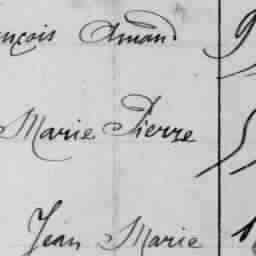 nçois Amand 9
Marie Pierre 5
Jean Marie